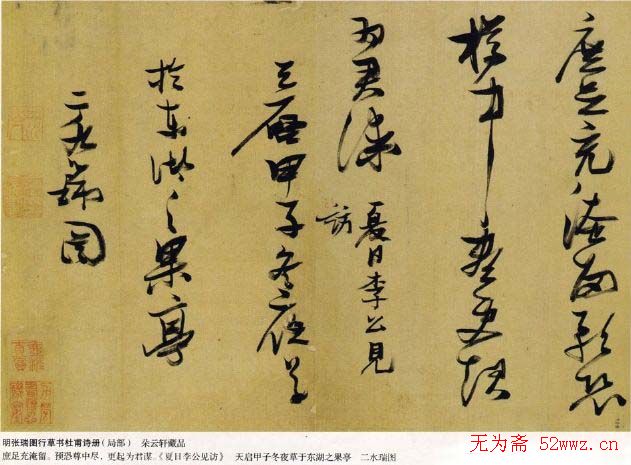 庶足充淹留預恐
樽中盡更起
為君謀 夏日李公見
訪
天啓甲子冬夜草
於東湖之果亭
二水瑞圖
明张瑞图行草书杜甫诗册(局部) 朵云轩藏品
庶足充淹留。预恐尊中尽,更起为君谋。《夏日李公见访》 天启甲子冬夜草于东湖之果亭 二水瑞图
无为斋 52wwz.cn